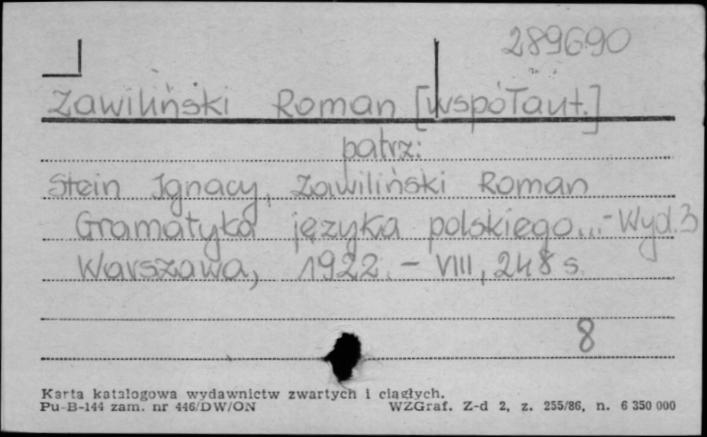 289690
Zawiliński Roman [współaut.]
patrz:
Stein Ignacy, Zawiliński Roman
Gramatyka języka polskiego...-Wyd.3
Warszawa, 1922. - VIII, 248 s.
8
Karta katalogowa wydawnictw zwartych i ciągłych.
Pu-B-144 zam. nr 446/DW/ON WZGraf. Z-d 2, z. 255/86, n. 6 350 000